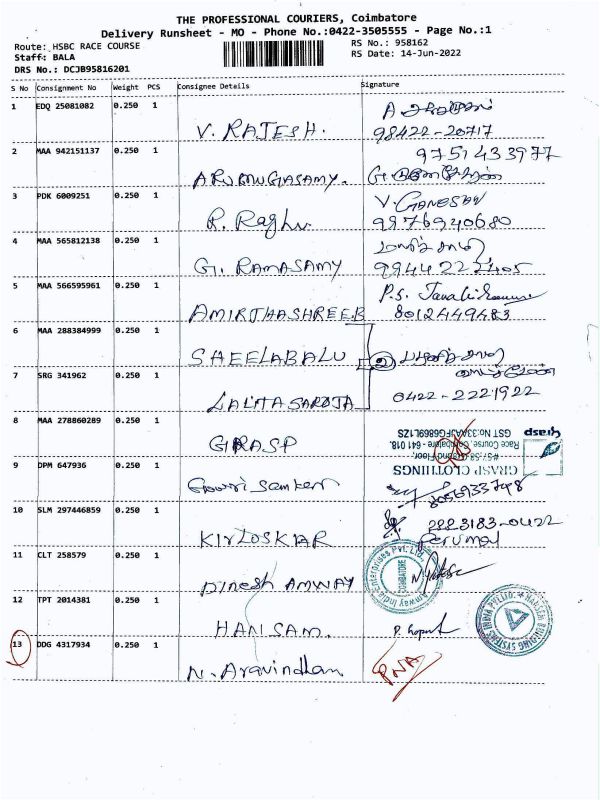 THE PROFESSIONAL COURIERS, Coimbatore
Delivery Runsheet - MO - Phone No.:0422-3505555 - Page No.:1
Route: HSBC RACE COURSE
RS No.: 958162
Staff: BALA
RS Date: 14-Jun-2022
DRS No.: DCJB95816201
S No Consignment No Weight PCS Consignee Details Signature
1 EDQ 25081082 0.250 1
V. RAJESH. 98422-20717
2 MAA 942151137 0.250 1 9751433977
ARUMUGASAMY.
3 PDK 6009251 0.250 1 V. GANESAN
R. Raghu. 9976940680
4 MAA 565812138 0.250 1
G. RAMASAMY 9944222405
5 MAA 566595961 0.250 1 P.S.
AMIRTHASHREE.B 8012449483
6 MAA 288384999 0.250 1
SHEELABALU
7 SRG 341962 0.250 1
LALITA SAROJA 0422-2221922
8 MAA 278860289 0.250 1
GRASP
grasp
GRASP CLOTHINGS
Race Course, Coimbatore - 641 018.
9 DPM 647936 0.250 1
Gowri Sankar 8056933748
10 SLM 297446859 0.250 1 2223183-0422
KIRLOSKAR Perumal
11 CLT 258579 0.250 1
DINESH AMWAY
Amway India Enterprises Pvt. Ltd.
COIMBATORE
12 TPT 2014381 0.250 1
HANSAM. P. Gopal
13 DDG 4317934 0.250 1
N. Aravindhan PNA